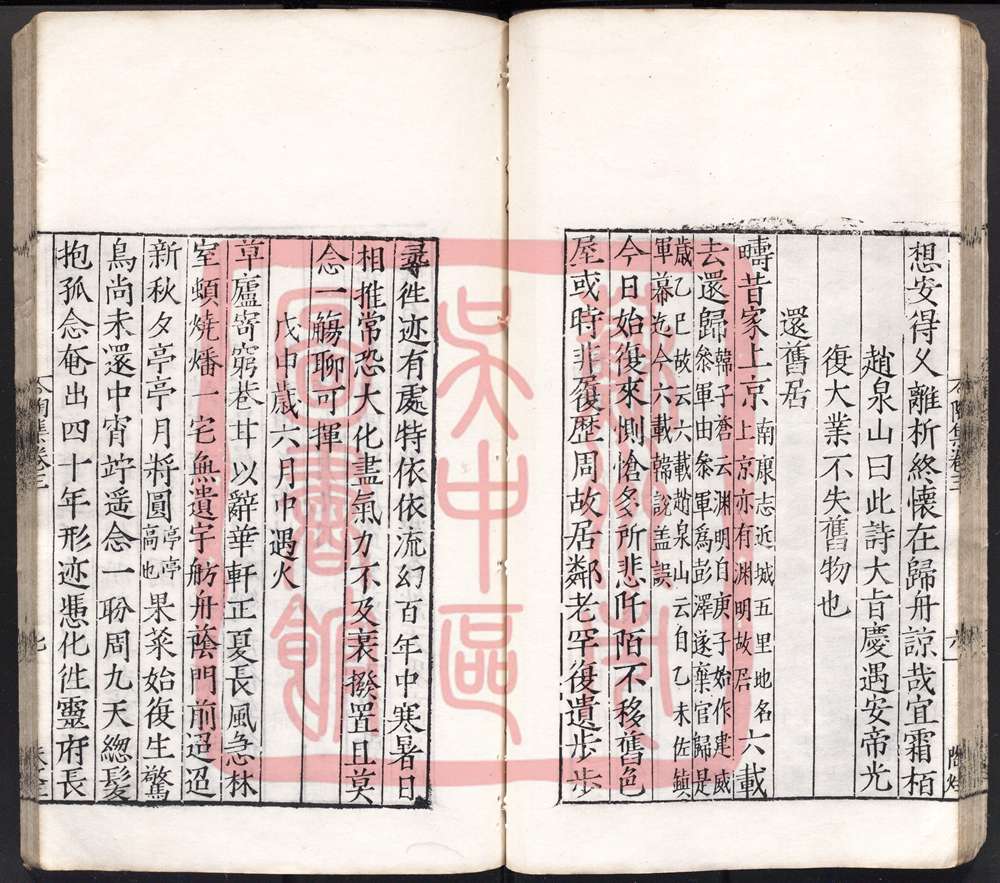 想安得久離析終懷在歸舟諒哉宜霜栢
趙泉山曰此詩大旨慶遇安帝光
復大業不失舊物也
還舊居
疇昔家上京南康志近城五里地名上京亦有淵明故居六載
去還歸韓子蒼云淵明自庚子始作建威參軍由參軍爲彭澤遂棄官歸是
歲乙巳故云六載趙泉山云自乙未佐鎮軍幕迄今六載韓說盖誤
今日始復來惻愴多所悲阡陌不移舊邑
屋或時非履歷周故居鄰老罕復遺步步
尋徃迹有處特依依流幻百年中寒暑日
相推常恐大化盡氣力不及衰撥置且莫
念一觴聊可揮
戊申歲六月中遇火
草廬寄窮巷甘以辭華軒正夏長風急林
室頓燒燔一宅無遺宇舫舟蔭門前迢迢
新秋夕亭亭月將圓亭亭高也果菜始復生驚
鳥尚未還中宵竚遥念一盼周九天緫髮
抱孤念奄出四十年形迹憑化徃靈府長
六
七
蘇州市
吳中區
圖書館